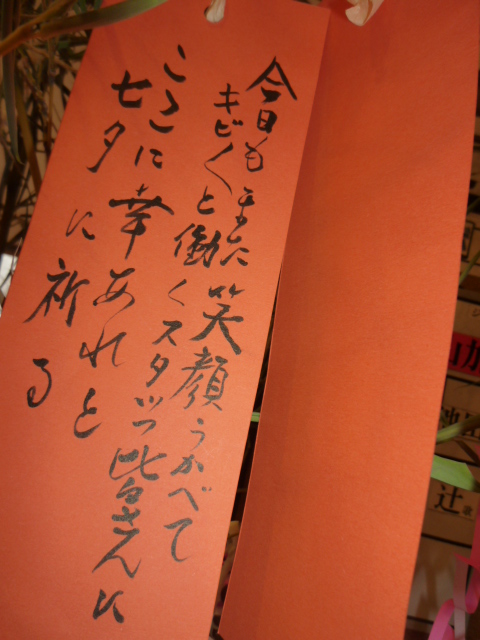 今日もまた笑顔うかべて
キビ〱と働くスタッフ皆さんに
ここに幸あれと
七夕に祈る
辻